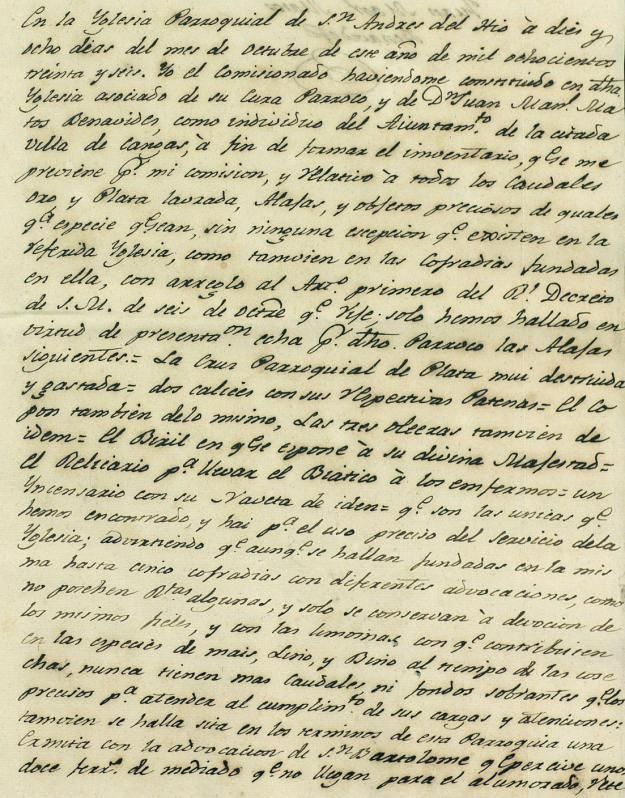 En la Yglesia Parroquial de S.n Andres del Hio à dies y
ocho dias del mes de octubre de este año de mil ochocientos
treinta y seis. Yo el Comisionado haviendome constituido en dha.
Yglesia asociado de su Cura Parroco, y de D.n Juan Man.l Ma-
tos Benavides, como individuo del Aiuntam.to de la citada
villa de Cangas, à fin de formar el imventario, q.e se me
previene p.r mi comision, y relativo à todos los Caudales
oro y Plata laurada, Alajas, y objetos preciosos de quales
q.a especie q.e sean, sin ninguna escepcion q.e existen en la
referida Yglesia, como tamvien en las Cofradias fundadas
en ella, con arreglo al Art.o primero del R.l Decreto
de S. M. de seis de octre. q.e rije: solo hemos hallado en
virtud de presenta.on echa p.r dho. Parroco las Alajas
siguientes.= La Cruz Parroquial de Plata mui destruida
y gastada= dos calices con sus respectivas Patenas= El Co
pon también delo mismo, Las tres oleeras tamvien de
idem= El Biril en q.e se espone à su divina Majestad=
el Relicario p.a llevar el Biático à los emfermos= un
Yncensario con su Naveta de iden= q.e son las unicas q.e
hemos encontrado, y hai p.a el uso preciso del servicio dela
Yglesia; advirtiendo q.e aunq.e se hallan fundadas en la mis
ma hasta cinco cofradias con diferentes advocaciones, como
no poséhen R.tas algunas, y solo se conservan à devocion de
los mismos fieles, y con las limosnas, con q.e contribuien
en las especies de mais, Lino, y Bino al tiempo de las cose
chas, nunca tienen mas caudales, ni fondos sobrantes q.e los
precisos p.a atender al cumplim.to de sus cargas y atenciones:
tamvien se halla sita en los terminos de esta Parroquia una
Ermita con la advocacion de S.n Bartolome q.e percive unos
doce ferr.s de mediado q.e no llegan para el alumbrado, rete